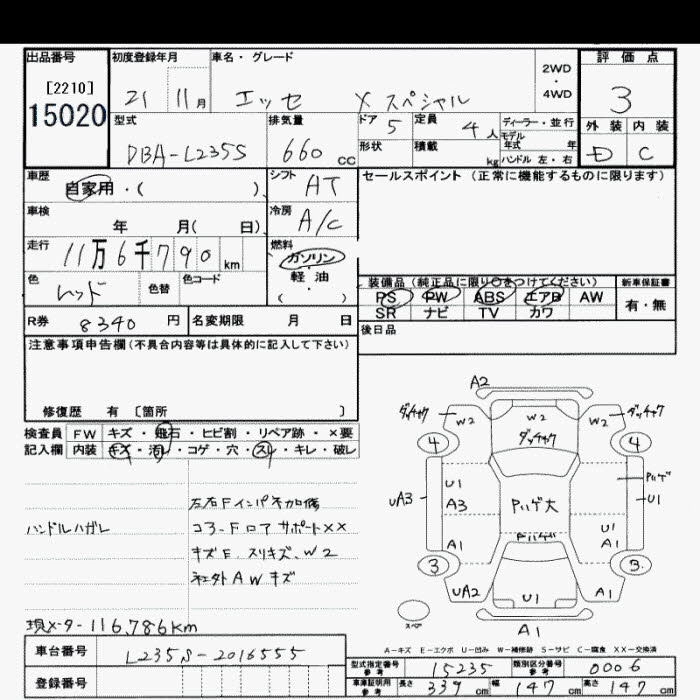 出品番号 初度登録年月 車名・グレード 2WD・4WD 評価点
[2210]
15020
21 11月 エッセ Xスペシャル 3
型式 排気量 ドア 5 定員 4人 ディーラー・並行
モデル年式 年
形状 積載 kg ハンドル 左・右
外装 内装
DBA-L235S 660cc D C
車歴 自家用・( ) シフト AT セールスポイント(正常に機能するものに限ります)
車検 年 月( 日) 冷房 A/C
走行 11万6千790km 燃料 ガソリン
軽油
( )
色 レッド 色替 色コード
装備品(純正品に限り○をつけてください) 新車保証書
PS PW ABS エアB AW 有・無
SR ナビ TV カワ
R券 8340円 名変期限 月 日 後日品
注意事項申告欄(不具合内容等は具体的に記入して下さい)
修復歴 有〔箇所 〕
検査員 FW キズ・飛石・ヒビ割・リペア跡・×要
記入欄 内装 キズ・汚レ・コゲ・穴・スレ・キレ・破レ
ハンドルハガレ
左右Fインパネ加傷
コアーフロアサポートXX
キズE、スリキズ、W2
社外AWキズ
現メーター116,786km
車台番号 L235S-2016555
登録番号
A2
ダッチャク W2 W2 W2 ダッチャク
ダッチャク
4 4
U1 Pハゲ
UA3 A3 Pハゲ大 U1
Pハゲ U1
A1 A1
3 3
UA2 U1 A1
スペア A1
A-キズ E-エクボ U-凹み W-補修跡 S-サビ C-腐食 XX-交換済
型式指定番号 参考 15235 類別区分番号 参考 0006
車庫証明用 参考 長さ 339cm 幅 147cm 高さ 147cm